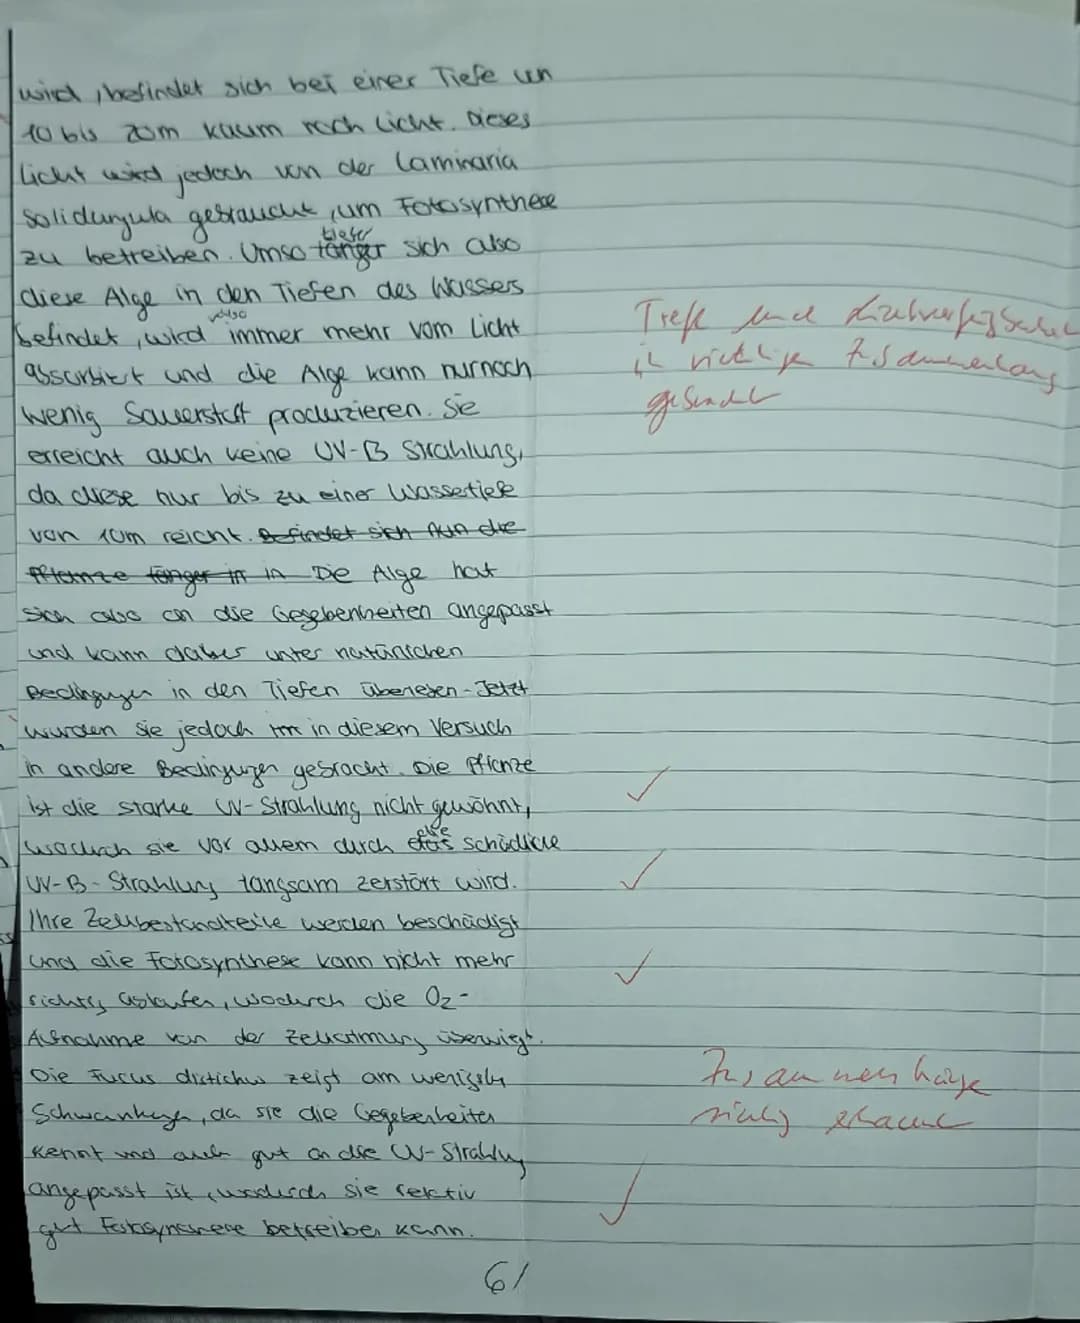 wird, befindet sich bei einer Tiefe von
10 bis 20m kaum noch Licht. Dieses
Licht wird jedoch von der Laminaria
Solidungula gebraucht, um Fotosynthese
zu betreiben. Umso länger tiefer sich also
diese Alge in den Tiefen des Wassers
befindet, wird also immer mehr vom Licht
absorbiert und die Alge kann nurnoch
wenig Sauerstoff produzieren. Sie
erreicht auch keine UV-B Strahlung,
da diese nur bis zu einer Wassertiefe
von 10m reicht. Befindet sich nun die
Pflanze länger in in Die Alge hat
sich also an die Gegebenheiten angepasst
und kann daher unter natürlichen
Bedingungen in den Tiefen überleben. Jetzt
wurden sie jedoch in diesem Versuch
in andere Bedingungen gebracht. Die Pflanze
ist die starke UV-Strahlung nicht gewöhnt,
wodurch sie vor allem durch die schädliche
UV-B-Strahlung langsam zerstört wird.
Ihre Zellbestandteile werden beschädigt
und die Fotosynthese kann nicht mehr
richtig ablaufen, wodurch die O2-
Aufnahme von der Zellatmung überwiegt.
Die Fucus distichus zeigt am wenigsten
Schwankungen, da sie die Gegebenheiten
kennt und auch gut an die UV-Strahlung
angepasst ist, wodurch sie relativ
gut Fotosynthese betreiben kann.
6/
Tiefe und Lichtverfügbarkeit
in richtigen Zusammenhang
gestellt
Zusammenhänge
richtig erkannt